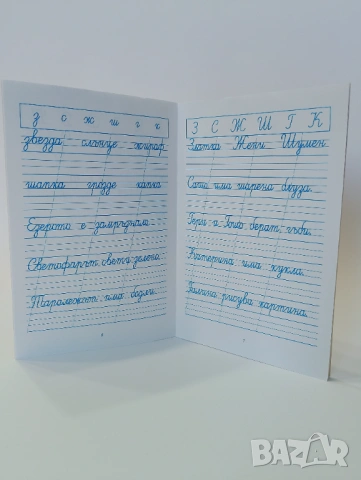 з с ж ш г к
звезда слънце жираф
шапка грозде капка
Езерото е замръзнало.
Светофарът свети зелено.
Таралежът има бодли.
З С Ж Ш Г К
Златка Жени Шумен
Саша има шарена блуза.
Гери и Гошо берат гъби.
Катерина има кукла.
Галина рисува картина.
BAZAR
bg